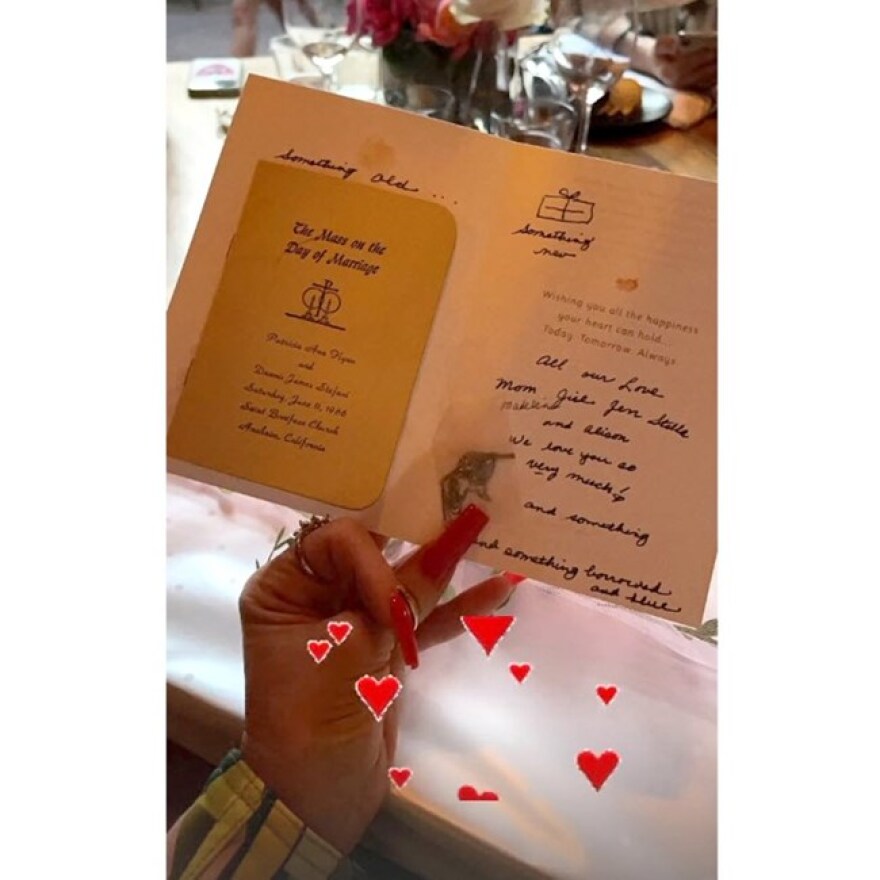 Something Old...
The Mass on the
Day of Marriage
Patricia Ann Flynn
and
James
Saturday, June 11, 1966
Saint Boniface Church
Anaheim, California
Something
new
Wishing you all the happiness
your heart can hold...
Today. Tomorrow. Always.
All our Love
Mom Jen
and alison
We love you so
very much!
and something
and something borrowed
and blue